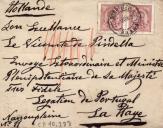 Hollande
Son Excellence
Le Vicomte de Pindella
Envoyé Extraordinaire et Ministre
Plénipotentiaire de Sa Majesté
Très Fidèle
Légation de Portugal
La Haye